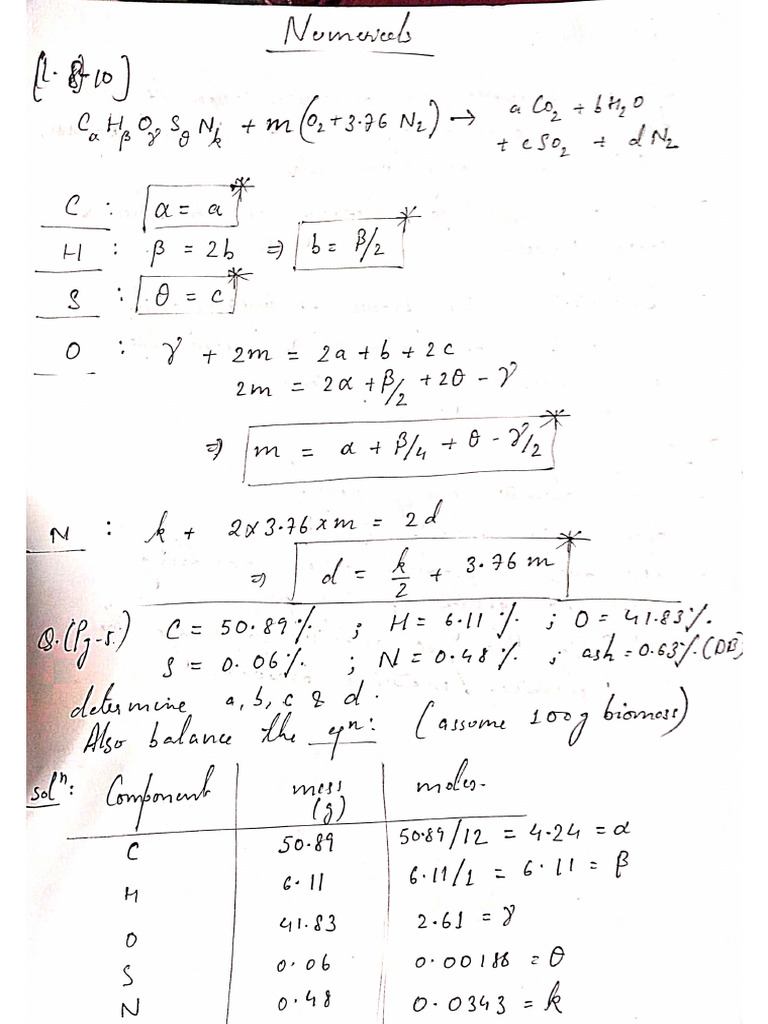 Numericals
[1. 8-10]
CαHβOγSθNk + m(O2+3.76 N2) → a CO2 + bH2O
+ c SO2 + d N2
C : α = a*
H : β = 2b ⇒ b = β/2*
S : θ = c*
O : γ + 2m = 2a + b + 2c
2m = 2α + β/2 + 2θ - γ
⇒ m = α + β/4 + θ - γ/2*
N : k + 2×3.76×m = 2d
⇒ d = k/2 + 3.76 m*
Q.(Pg-5.) C = 50.89% ; H = 6.11 % ; O = 41.83%.
S = 0.06% ; N = 0.48 % ; ash = 0.63% (DB)
determine a, b, c & d.
Also balance the eqn: (assume 100g biomass)
soln: Component mass (g) moles.
C 50.89 50.89/12 = 4.24 = α
H 6.11 6.11/1 = 6.11 = β
O 41.83 2.61 = γ
S 0.06 0.00188 = θ
N 0.48 0.0343 = k